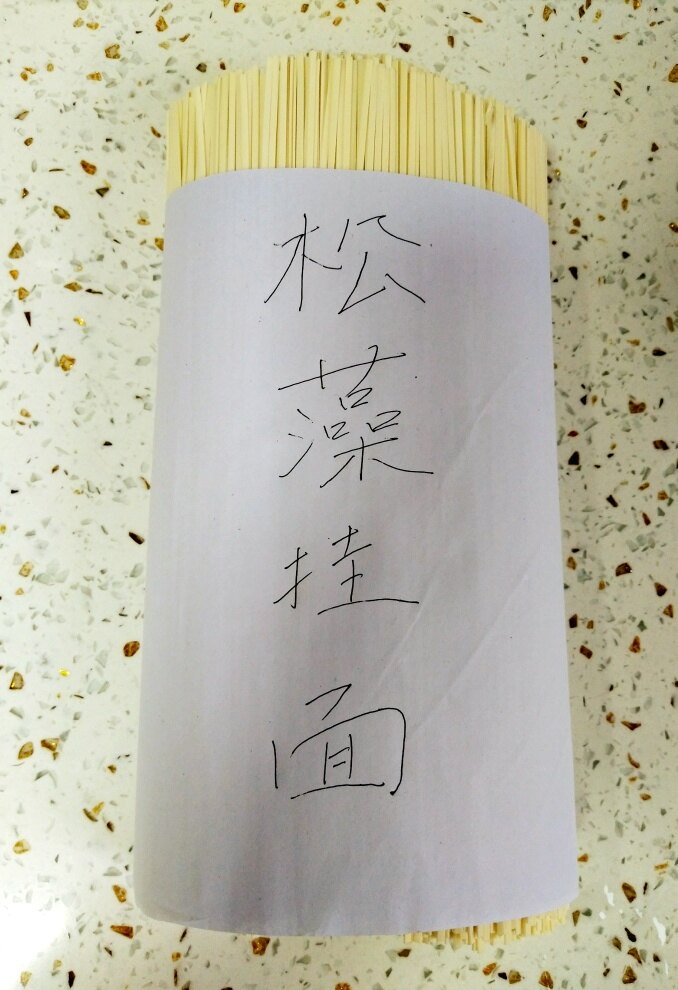 松藻挂面